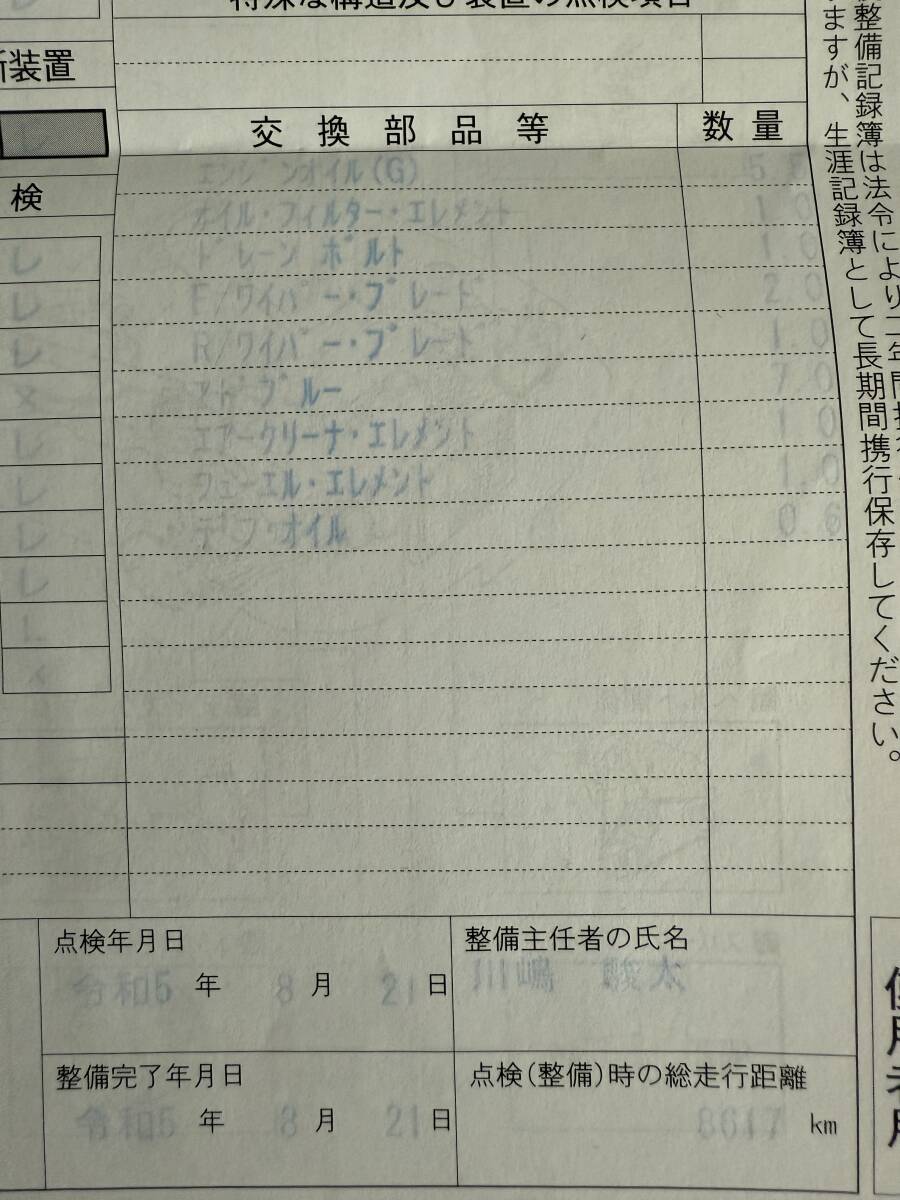 特殊な構造及び装置の点検項目
装置
交換部品等 数量
レ
エンジンオイル(G)
検
オイル・フィルター・エレメント 1.0
レ ドレーン ボルト 1.0
レ F/ワイパー・ブレード 2.0
レ R/ワイパー・ブレード 1.0
× アドブルー 7.0
レ エアークリーナ・エレメント 1.0
レ フューエル・エレメント 1.0
レ デフ・オイル 0.6
レ
点検年月日
令和5 年 8 月 21 日
整備主任者の氏名
川嶋 駿太
整備完了年月日
令和5 年 8 月 21 日
点検(整備)時の総走行距離
8617 km
整備記録簿は法令により二年間携行
ますが、生涯記録簿として長期間携行保存してください。
使用者用